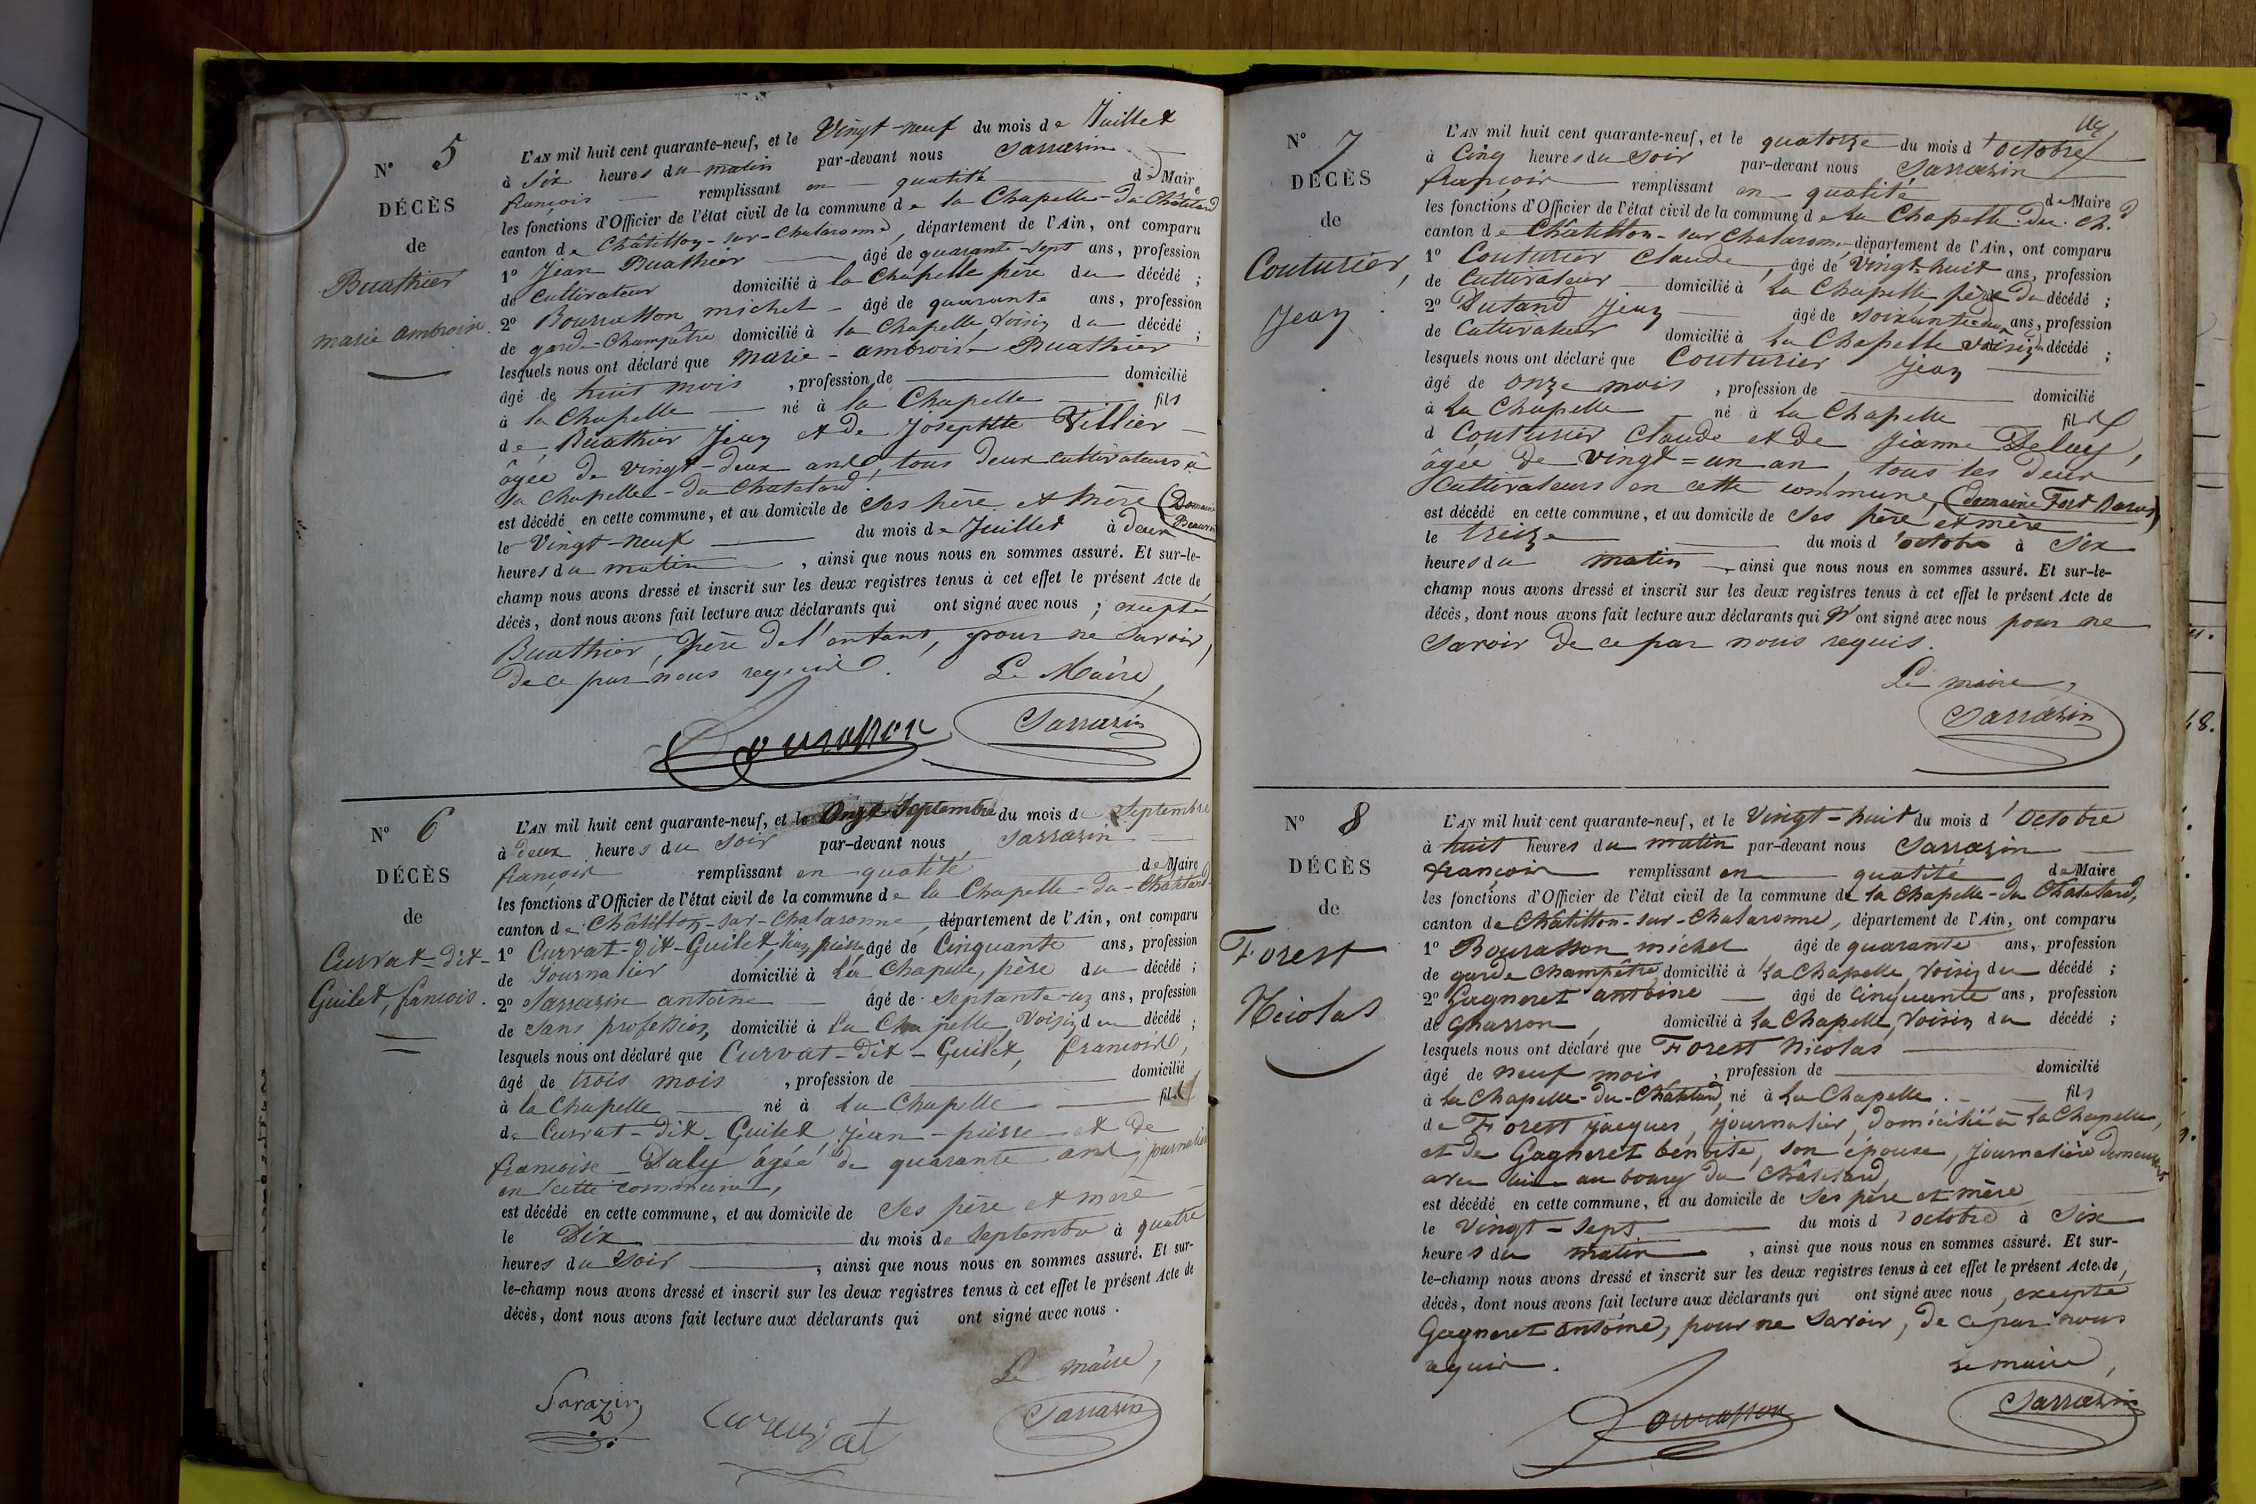 N° 5
DÉCÈS
de
Buathier
marie ambroise.
L'AN mil huit cent quarante-neuf, et le Vingt-neuf du mois de Juillet
à Six heures du matin par-devant nous Sarrazin
françois remplissant en qualité de Maire
les fonctions d'Officier de l'état civil de la commune de la Chapelle-du-Châtelard
canton de Châtillon-sur-Chalaronne, département de l'Ain, ont comparu
1° Jean Buathier âgé de quarante-sept ans, profession
de Cultivateur domicilié à la Chapelle père du décédé ;
2° Bourasson michel âgé de quarante ans, profession
de garde-Champêtre domicilié à la Chapelle, Voisin du décédé ;
lesquels nous ont déclaré que marie-ambroise Buathier
âgé de huit mois , profession de domicilié
à la Chapelle né à la Chapelle fils
de Buathier Jean et de Josephte Villier
âgée de vingt-deux ans, tous deux cultivateurs à
la Chapelle-du-Chatelard.
est décédé en cette commune, et au domicile de Ses père et mère (Domaine
le Vingt-neuf du mois de Juillet à deux
heures du matin , ainsi que nous nous en sommes assuré. Et sur-le-
champ nous avons dressé et inscrit sur les deux registres tenus à cet effet le présent Acte de
décès, dont nous avons fait lecture aux déclarants qui ont signé avec nous ; excepté
Buathier, père de l'enfant, pour ne Savoir,
de ce par nous requis. Le Maire,
Bourasson Sarrazin
N° 6
DÉCÈS
de
Curvat-dit-
Guilet, francois.
L'AN mil huit cent quarante-neuf, et le Onze Septembre du mois de Septembre
à deux heures du Soir par-devant nous Sarrazin
françois remplissant en qualité de Maire
les fonctions d'Officier de l'état civil de la commune de la Chapelle-du-Châtelard
canton de Châtillon-sur-Chalaronne, département de l'Ain, ont comparu
1° Curvat-Dit-Guilet, Jean pierre âgé de Cinquante ans, profession
de Journalier domicilié à La Chapelle, père du décédé ;
2° Sarrazin antoine âgé de Septante-un ans, profession
de Sans profession, domicilié à La Chapelle, Voisin du décédé ;
lesquels nous ont déclaré que Curvat-Dit-Guilet, francois,
âgé de trois mois , profession de domicilié
à la Chapelle né à La Chapelle fils
de Curvat-dit-Guilet Jean-pierre et de
francoise Daly âgée de quarante ans, journaliers
en cette commune,
est décédé en cette commune, et au domicile de Ses père et mère
le Dix du mois de Septembre à quatre
heures du Soir , ainsi que nous nous en sommes assuré. Et sur-
le-champ nous avons dressé et inscrit sur les deux registres tenus à cet effet le présent Acte de
décès, dont nous avons fait lecture aux déclarants qui ont signé avec nous .
Le maire,
Sarazin Sarrazin
N° 7
DÉCÈS
de
Couturier,
Jean
L'AN mil huit cent quarante-neuf, et le quatorze du mois d'Octobre
à Cinq heures du Soir par-devant nous Sarrazin
françois remplissant en qualité de Maire
les fonctions d'Officier de l'état civil de la commune de La Chapelle du Ch.d
canton de Châtillon-sur Chalaronne département de l'Ain, ont comparu
1° Couturier Claude, âgé de Vingt-huit ans, profession
de Cultivateur domicilié à La Chapelle père du décédé ;
2° Dutand Jean âgé de soixante deux ans, profession
de Cultivateur domicilié à La Chapelle Voisin du décédé ;
lesquels nous ont déclaré que Couturier Jean
âgé de onze mois , profession de domicilié
à La Chapelle né à La Chapelle fils
d Couturier Claude et de Jeanne
âgée de vingt=un an, tous les deux
Cultivateurs en cette commune,
est décédé en cette commune, et au domicile de Ses père et mère
le treize du mois d'octobre à Six
heures du matin , ainsi que nous nous en sommes assuré. Et sur-le-
champ nous avons dressé et inscrit sur les deux registres tenus à cet effet le présent Acte de
décès, dont nous avons fait lecture aux déclarants qui n'ont signé avec nous pour ne
Savoir de ce par nous requis.
Le maire,
Sarrazin
N° 8
DÉCÈS
de
Forest
Nicolas
L'AN mil huit cent quarante-neuf, et le Vingt-huit du mois d'Octobre
à huit heures du matin par-devant nous Sarrazin
françois remplissant en qualité de Maire
les fonctions d'Officier de l'état civil de la commune de la Chapelle-du Châtelard,
canton de Châtillon-sur-Chalaronne, département de l'Ain, ont comparu
1° Bourasson michel âgé de quarante ans, profession
de garde Champêtre, domicilié à La Chapelle, Voisin du décédé ;
2° Gagneret antoine âgé de Cinquante ans, profession
de Charron, domicilié à La Chapelle, Voisin du décédé ;
lesquels nous ont déclaré que Forest Nicolas
âgé de neuf mois , profession de domicilié
à La Chapelle-du-Châtelard, né à La Chapelle. fils
de Forest Jacques, journalier, domicilié à La Chapelle,
et de Gagneret benoite, son épouse, journalière demeurant
avec lui au bourg du Châtelard,
est décédé en cette commune, et au domicile de Ses père et mère
le Vingt-Sept du mois d'octobre à Six
heures du matin , ainsi que nous nous en sommes assuré. Et sur-
le-champ nous avons dressé et inscrit sur les deux registres tenus à cet effet le présent Acte de
décès, dont nous avons fait lecture aux déclarants qui ont signé avec nous, excepté
Gagneret antoine, pour ne Savoir, de ce par nous
requis. Le maire,
Bourasson Sarrazin